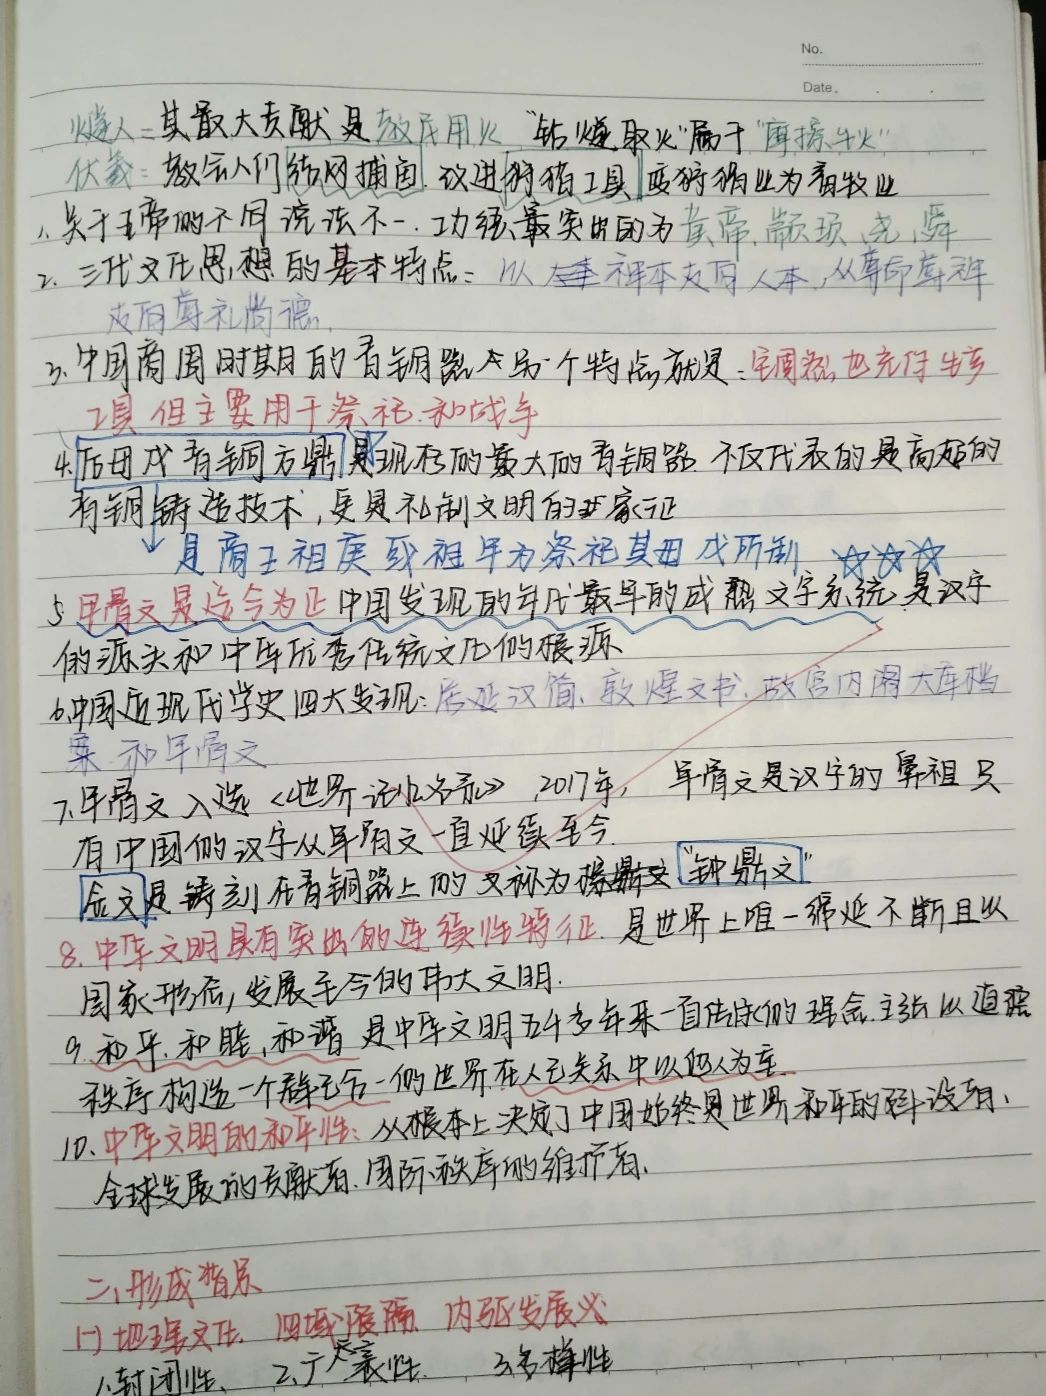 No.
Date.
燧人：其最大贡献是教民用火 "钻燧取火"属于"摩擦生火"
伏羲：教会人们结网捕鱼 改进狩猎工具 变狩猎业为畜牧业
1. 关于五帝的不同说法不一. 功绩最突出的为黄帝、颛顼、尧、舜
2. 三代文化思想的基本特点：以神本走向人本，从尊命尊神
走向尊礼尚德.
3. 中国商周时期的青铜器 另一个特点就是：它虽也充作生产
工具 但主要用于祭祀.和战争
4. 后母戊青铜方鼎 是现存的最大的青铜器 不仅代表的是高超的
青铜铸造技术，更是礼制文明的象征
是商王祖庚或祖甲为祭祀其母戊所制 ☆☆☆
5 甲骨文是迄今为止中国发现的年代最早的成熟文字系统 是汉字
的源头和中华优秀传统文化的根源
6. 中国近现代学史四大发现：居延汉简、敦煌文书、故宫内阁大库档
案 和甲骨文
7. 甲骨文入选《世界记忆名录》，2017年， 甲骨文是汉字的鼻祖 只
有中国的汉字从甲骨文一直延续至今.
金文是铸刻在青铜器上的 又称为 "钟鼎文"
8. 中华文明具有突出的连续性特征. 是世界上唯一绵延不断且以
国家形态，发展至今的伟大文明.
9. 和平、和睦、和谐 是中华文明五千多年来一直传承的理念. 主张以道德
秩序构造一个群己合一的世界 在人己关系中以他人为重.
10. 中华文明的和平性：从根本上决定了中国始终是世界和平的建设者、
全球发展的贡献者、国际秩序的维护者.
二、形成背景
(一) 地理文化. 四域限隔 内驱发展义
1. 封闭性、 2. 广袤性. 3. 多样性